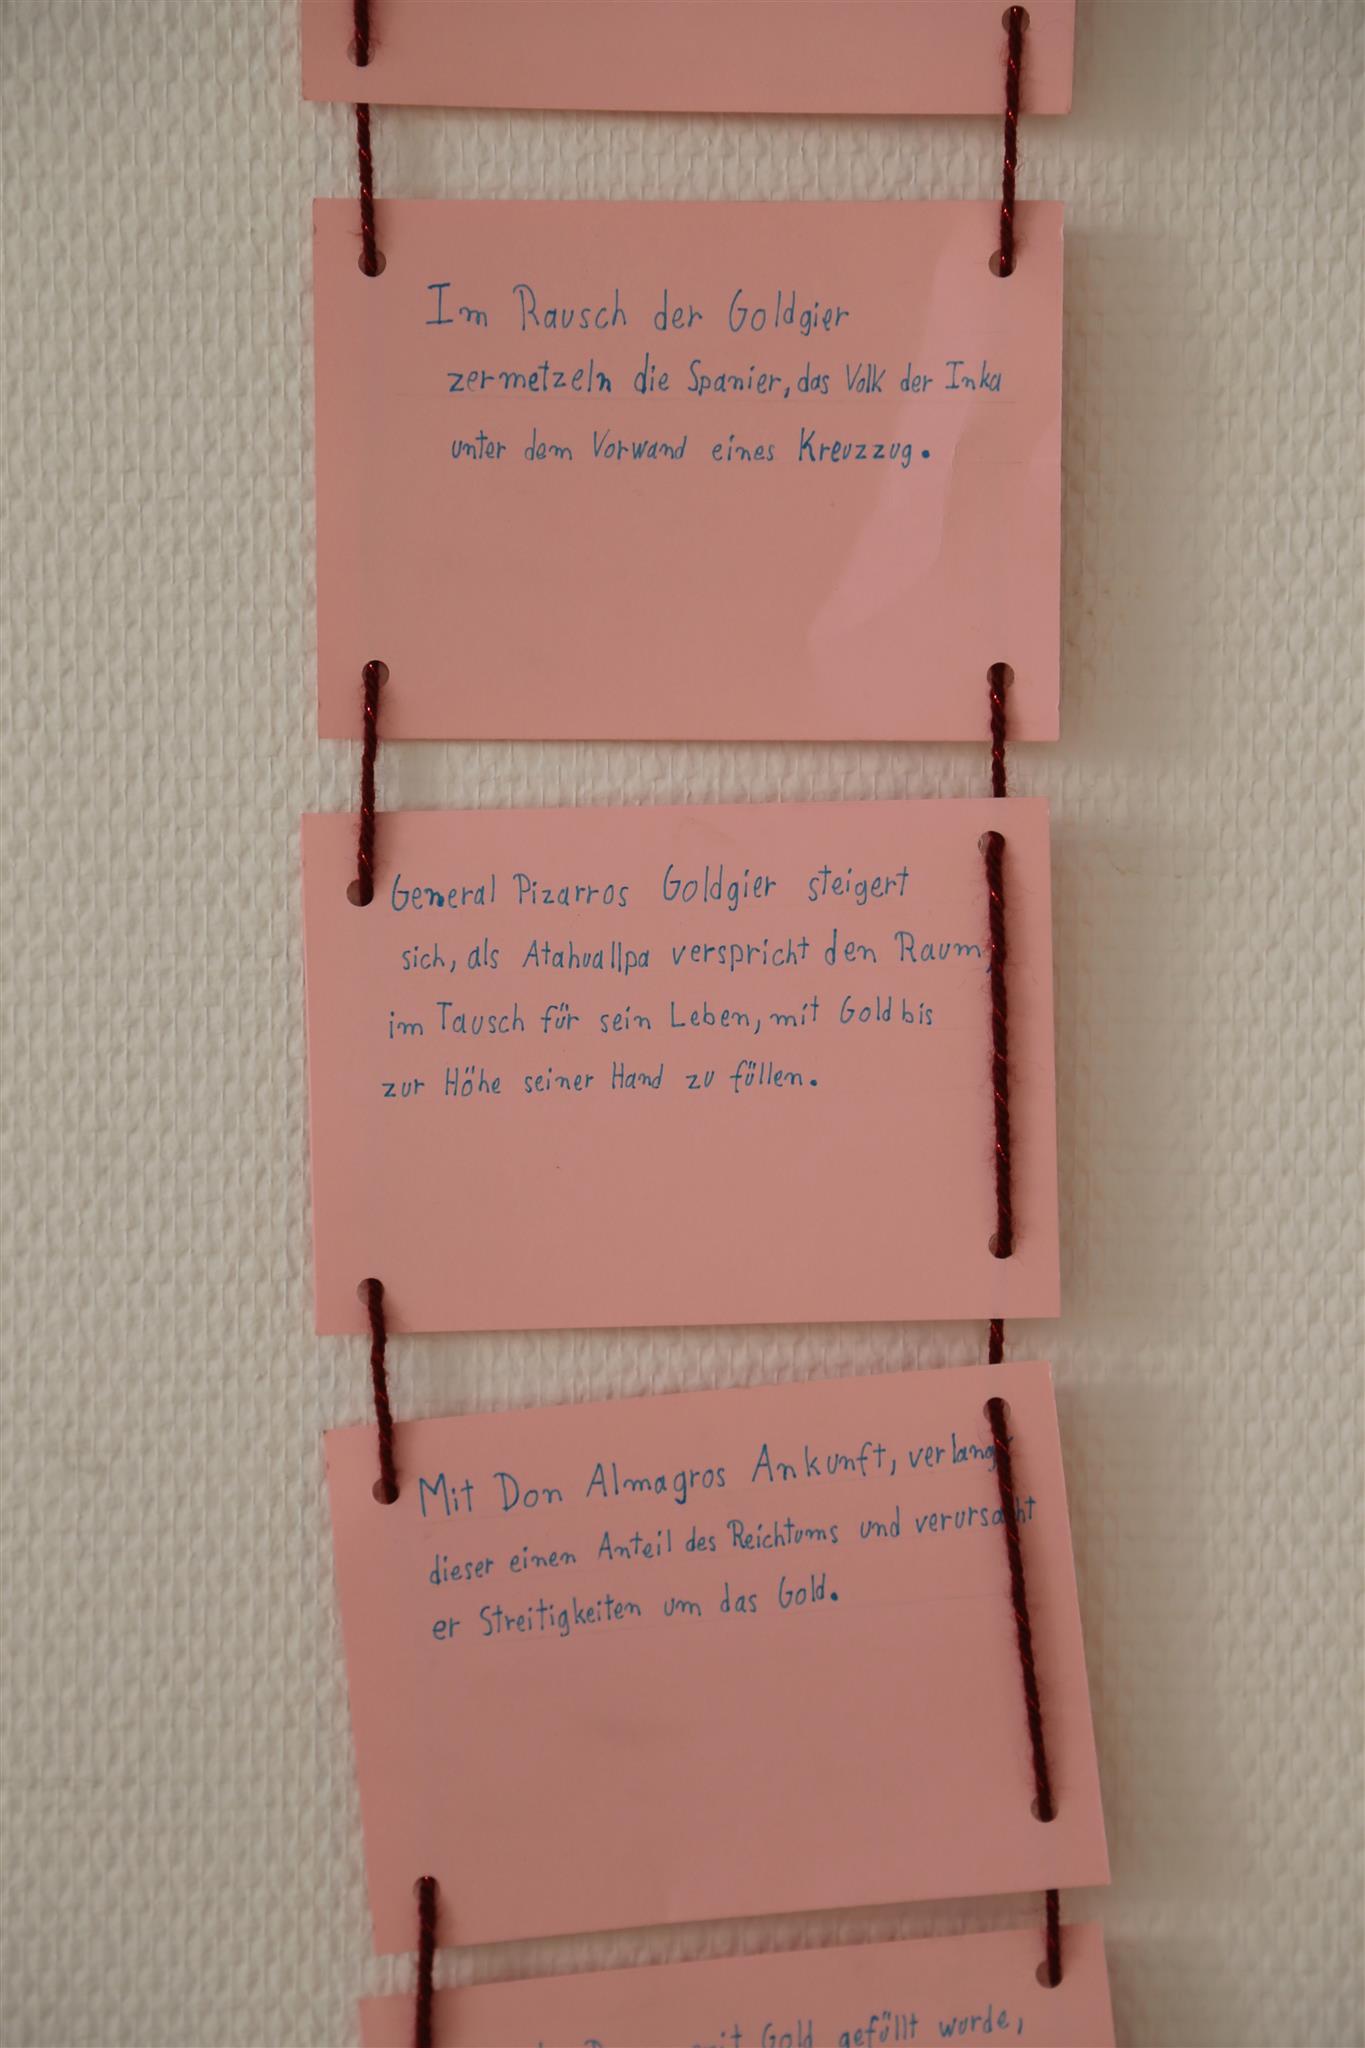 Im Rausch der Goldgier
zermetzeln die Spanier, das Volk der Inka
unter dem Vorwand eines Kreuzzug.
General Pizarros Goldgier steigert
sich, als Atahuallpa verspricht den Raum,
im Tausch für sein Leben, mit Gold bis
zur Höhe seiner Hand zu füllen.
Mit Don Almagros Ankunft, verlangt
dieser einen Anteil des Reichtums und verursacht
er Streitigkeiten um das Gold.
mit Gold gefüllt wurde,